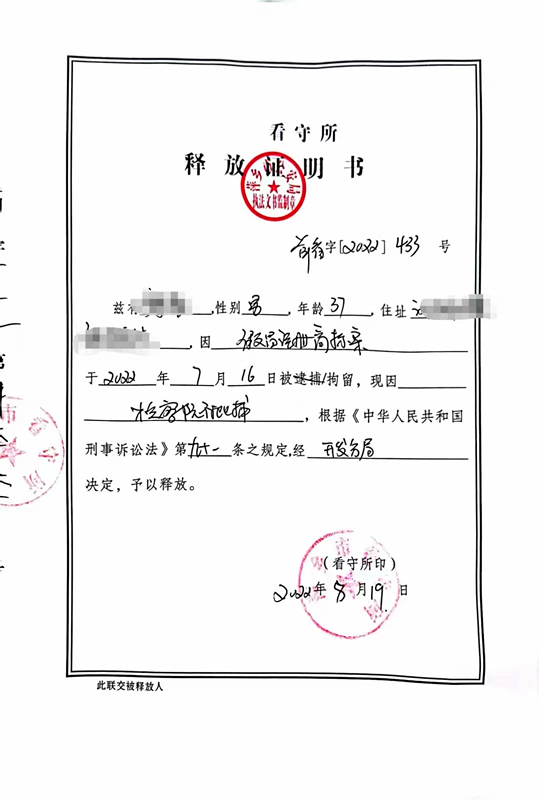 看守所
释放证明书
执法文书监制章
看字[2022] 433 号
兹有 ,性别 男 ,年龄 37 ,住址
,因 假冒注册商标案
于 2022 年 7 月 16 日被逮捕/拘留，现因
检察院不批捕 ，根据《中华人民共和国
刑事诉讼法》第 九十一 条之规定,经 开发分局
决定，予以释放。
(看守所印)
2022 年 8 月 19 日
此联交被释放人